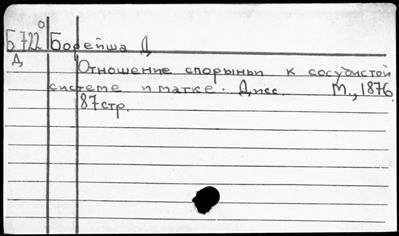 Б722⁰ Борейша Д
Д,
Отношение спорыньи к сосудистой
системе и матке. Дисс. М., 1876.
87стр.